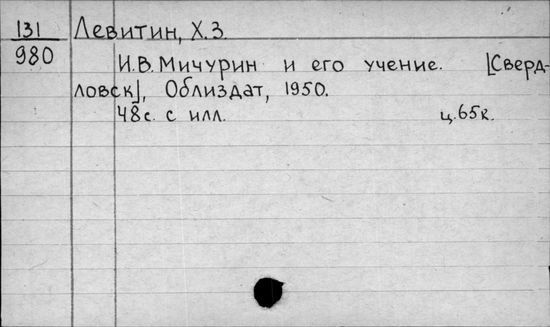 131 Левитин, Х.З.
980 И.В. Мичурин и его учение. [Сверд-
ловск], Облиздат, 1950.
48с. с илл. ц. 65к.